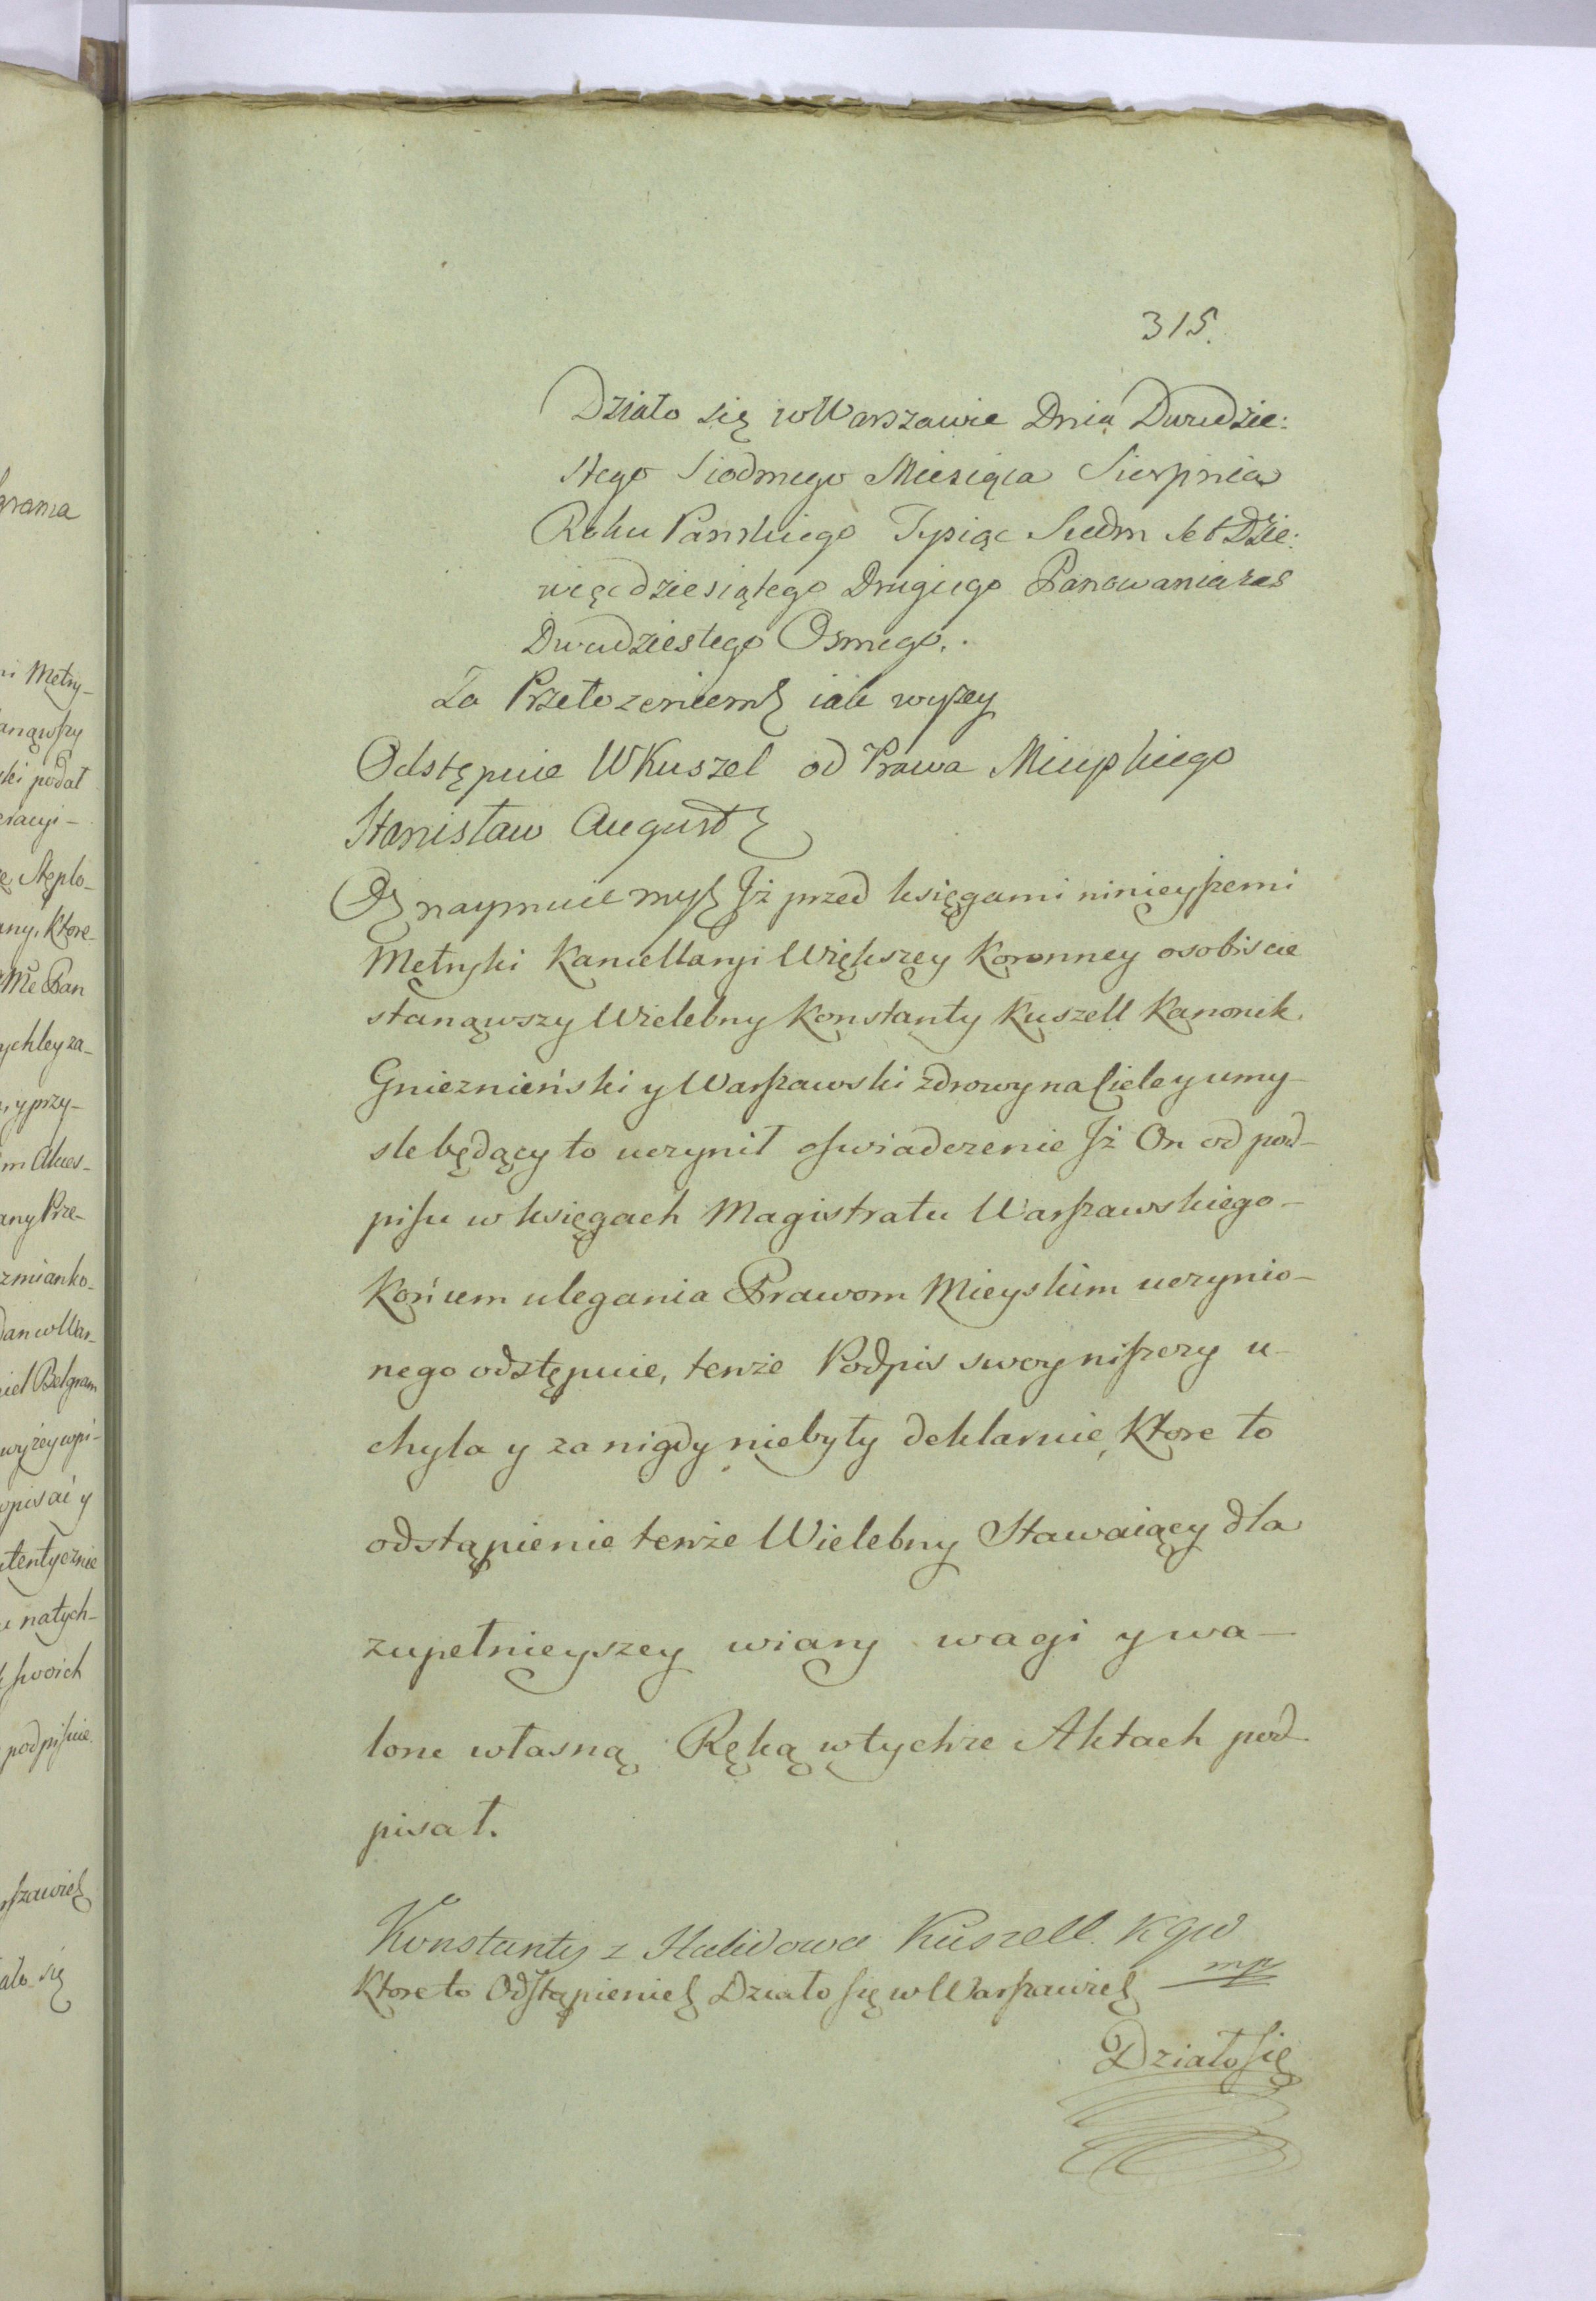 315.
Działo się w Warszawie Dnia Dwudzie:
stego Siodmego Miesiąca Sierpnia
Roku Panskiego Tysiąc Siedm Set Dzie:
więcdziesiątego Drugiego Panowania zas
Dwudziestego Osmego.
Za Przełozeniem iak wyzey
Odstępuie W Kuszel od Prawa Mieyskiego
Stanisław August
Oznaymuiemy Jż przed księgami ninieyszemi
Metryki Kancellaryi Większey Koronney osobiscie
stanąwszy Wielebny Konstanty Kuszell Kanonik
Gnieznieński y Warszawski zdrowy na Ciele y umy-
sle będący to uczynił oswiadczenie Jż On od pod-
pisu w księgach Magistratu Warszawskiego-
Końcem ulegania Prawom Mieyskim uczynio-
nego odstępuie, tenże Podpis swoy niszczy u-
chyla y za nigdy niebyły deklaruie, Ktore to
odstąpienie tenże Wielebny Stawaiący dla
zupełnieyszey wiary wagi y wa-
loru własną Ręką w tychże Aktach pod
pisał.
Konstanty z Kuszell. KGW
mp
Ktore to Odstąpienie Działo się w Warszawie
Działo się
grania
ni Metry-
anąwszy
ski podał
eracyi-
Stęplo-
any, Ktore-
Mć Pan
ychley za-
y przy-
m Akces-
any Prze-
zmianko-
Dan w War-
iel Belgram
wyżey wpi-
opisać y
tentycznie
natych-
swoich
podpisuie.
szawie
ało się